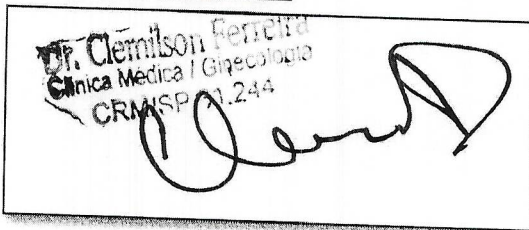 Dr. Clemilson Ferreira
Clínica Médica / Ginecologia
CRM/SP 1.244